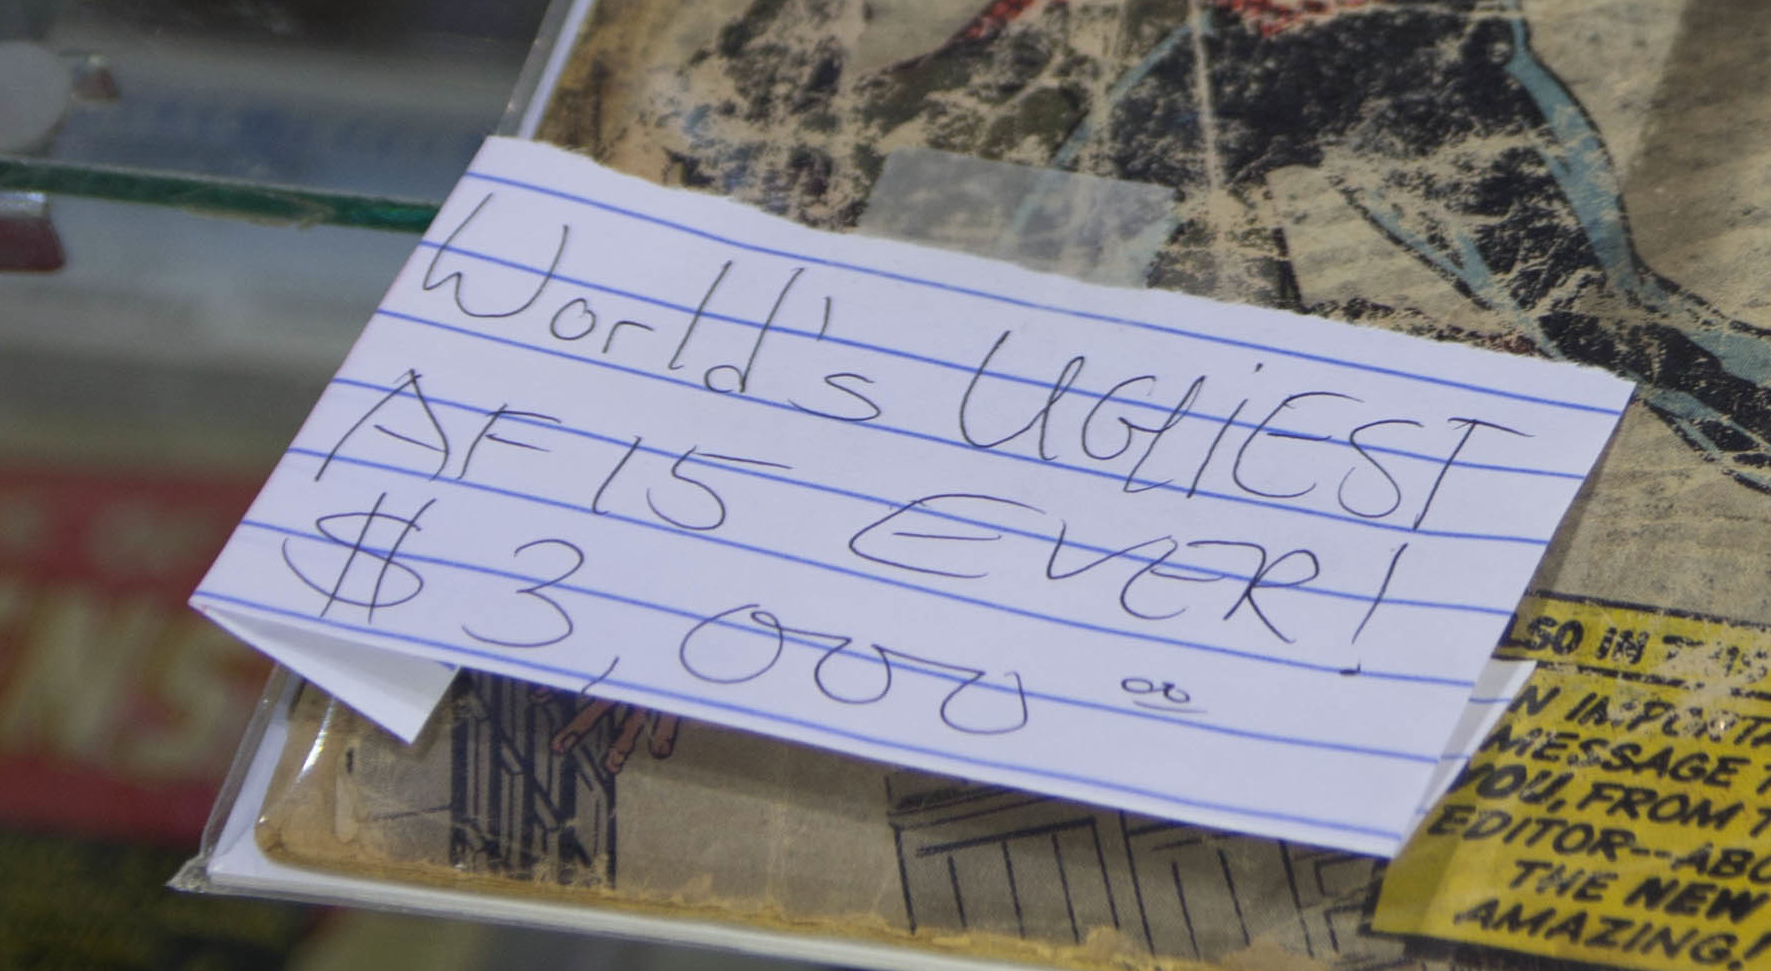 World's UGLiEST
AF 15 EVER!
$3,000 00
LSO IN
N IMPORTA
MESSAGE T
YOU, FROM T
EDITOR--ABO
THE NEW
AMAZING!
NS